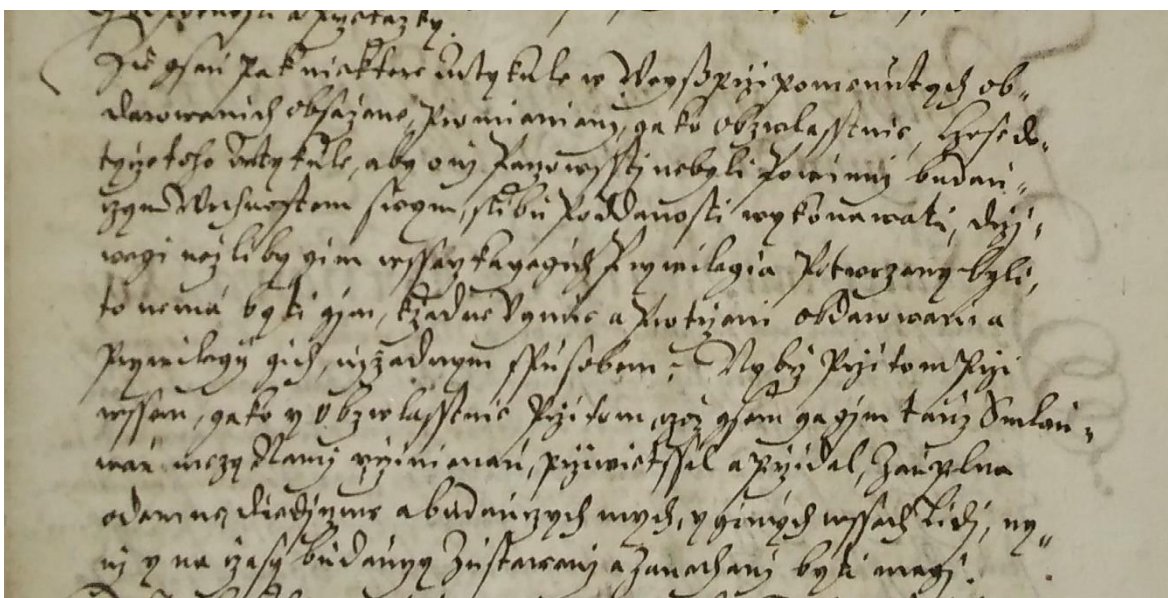 Že gsau pak niektere Artykule w Weysspřipomenutych ob„
darowanich obsažene, promieniany, gako obzwlasstnie, čzesto
tyž toho Artykule, aby oni Panowe nebyli powinni budau„
czym Wrchnostem swym, slibu poddanosti wykonawati, drži„
wegi nežliby gim wssaczka gegich Prywilegia potwrzeny byli,
to nema byti gim, kžadne Vgmie a protiženi obdarowani a
Prywilegij gich, nižadnym spusobem: Nybrž při tom při
wssem, gako y obzwlasstnie při tom, což gsem ga gim tauž Smlau„
wau mezy Namj včinienau, přiwietssil a přidal, zauplna
odemne, diediczuow a budauczych mych, y ginych wssech lidj, ny„
nj y na čzasy budauczy zustaweni a zanechani byti magj.